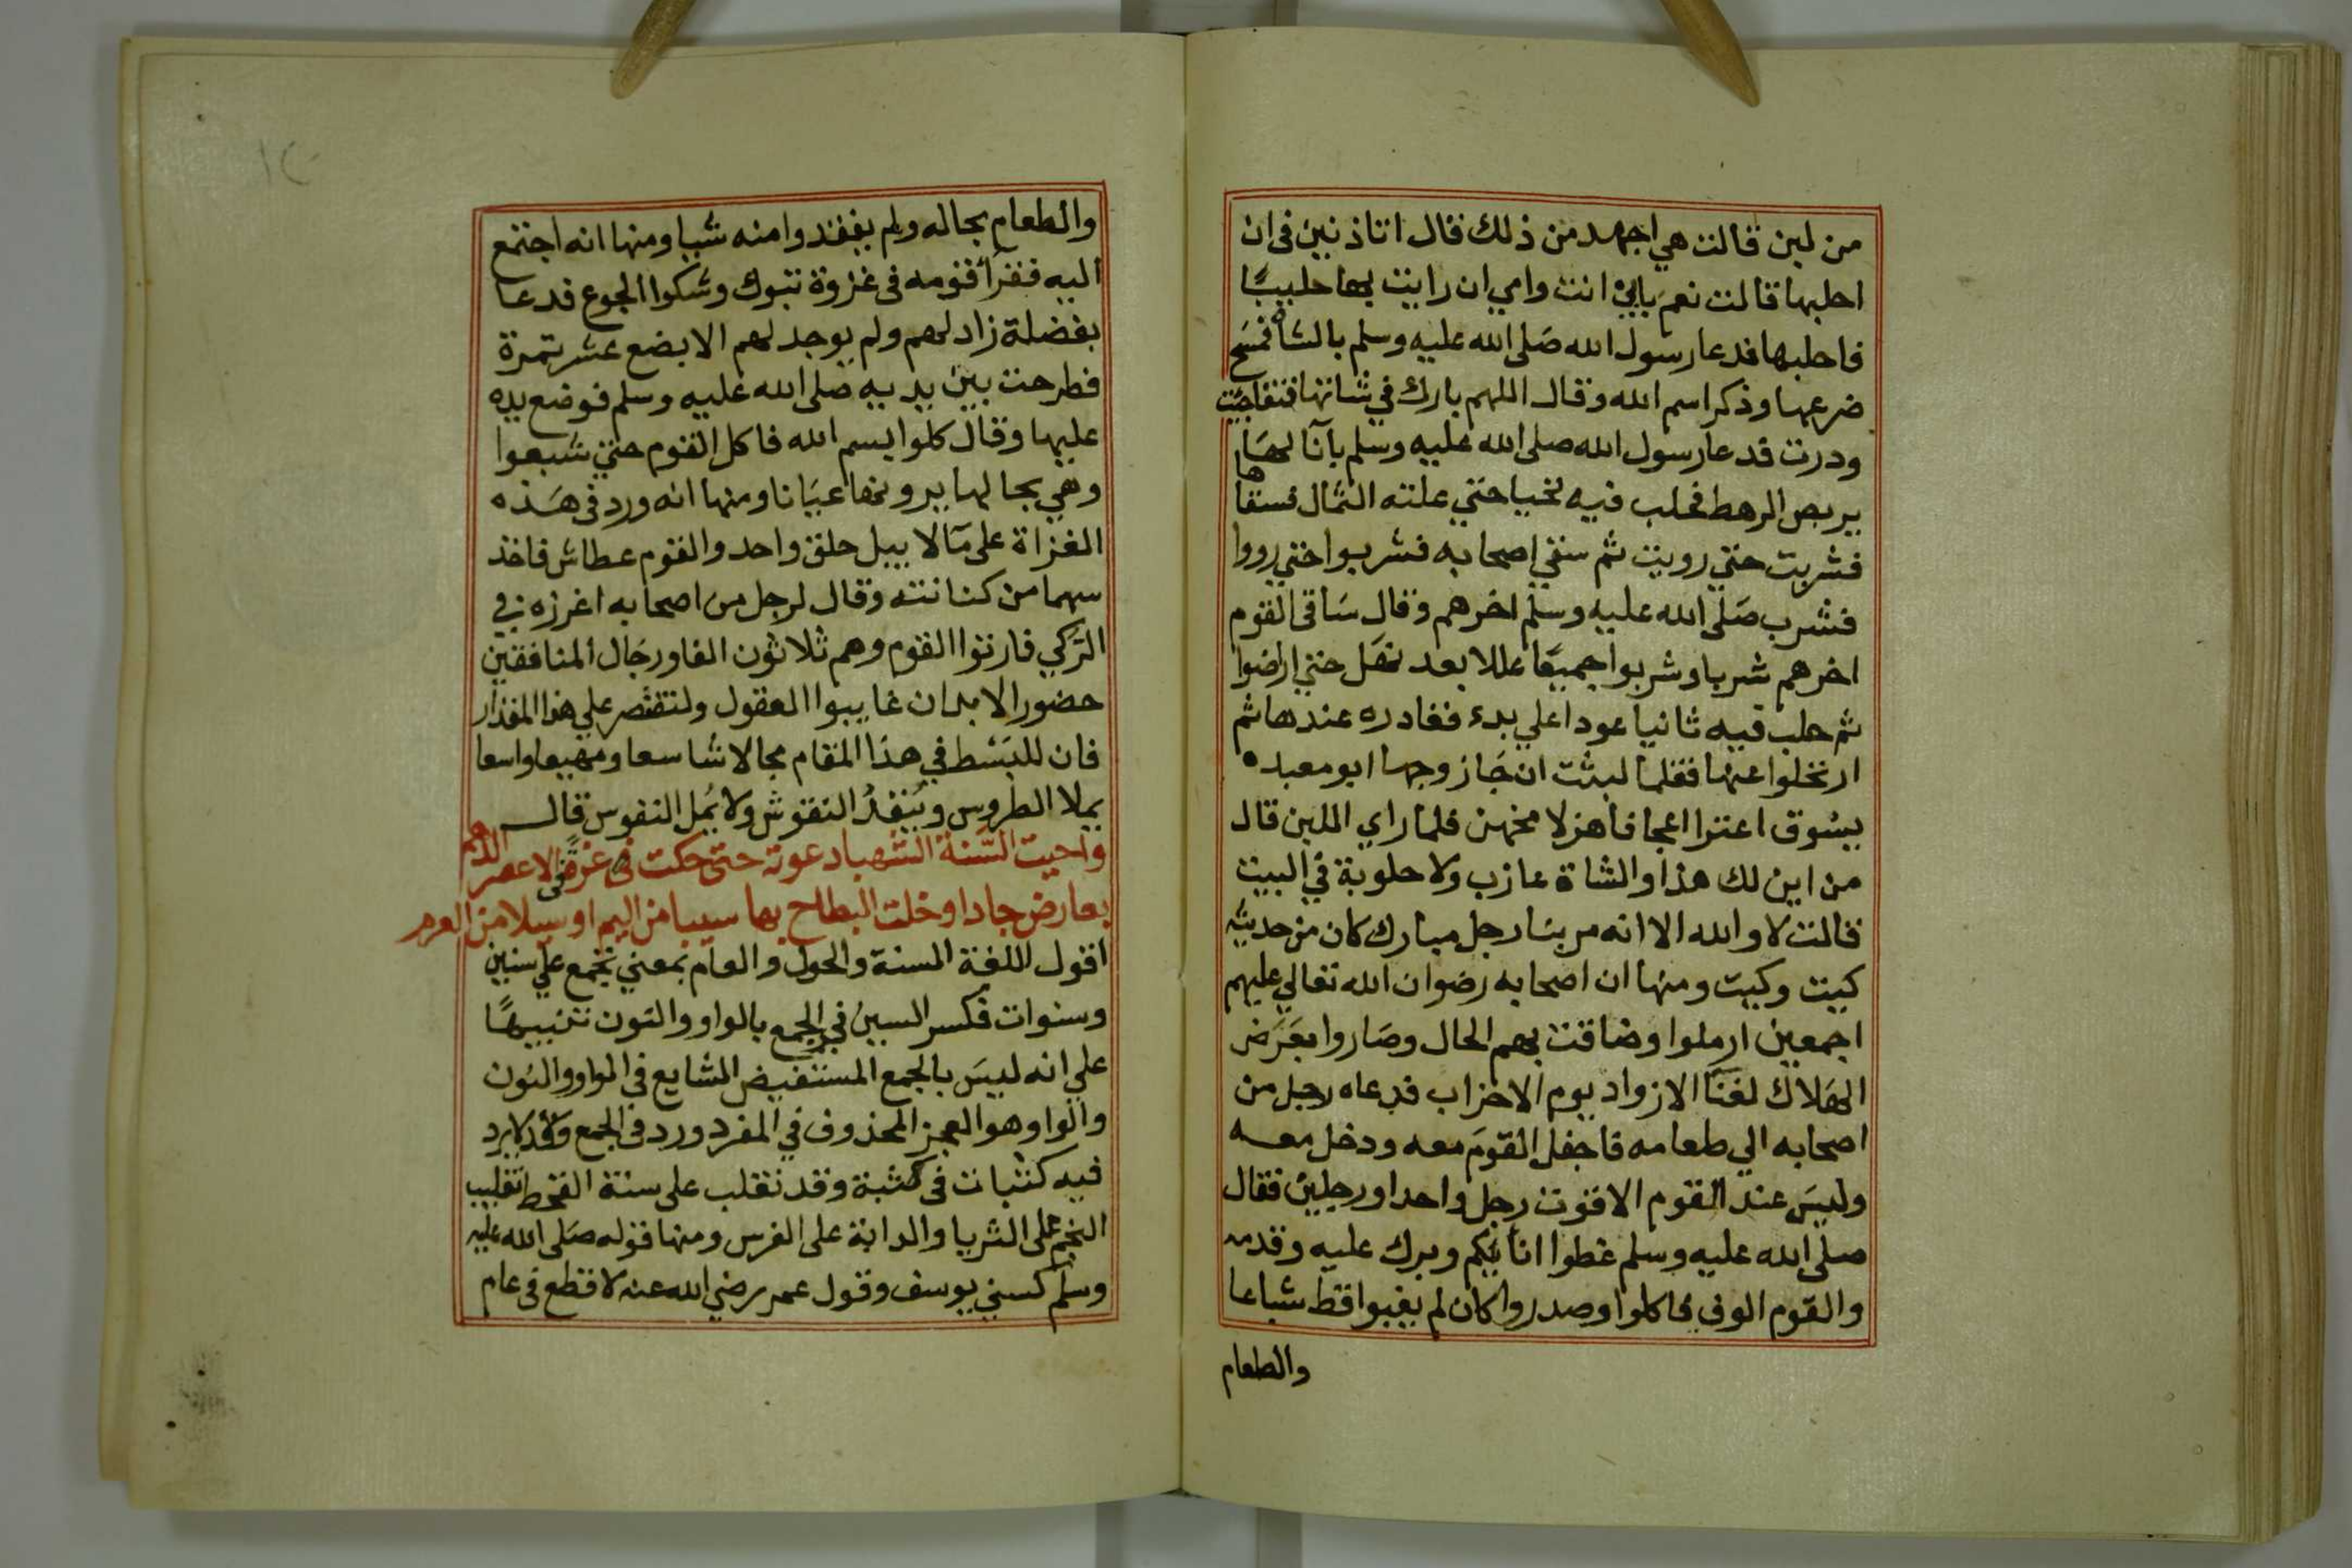 من لبن قالت هي اجهد من ذلك فقال اتاذنين في ان
احلبها قالت نعم بابي انت وامي ان رايت بها حليبًا
فاحلبها فدعا رسول الله صلى الله عليه وسلم بالشاة فمسح
ضرعها وذكر اسم الله وقال اللهم بارك في شاتها فتفاجت
ودرت فدعا رسول الله صلى الله عليه وسلم بانا لها
يربص الرهط فحلب فيه حتي علته الثمال فسقاها
فشربت حتي رويت ثم سقي اصحابه فشربوا حتي رووا
فشرب صلى الله عليه وسلم اخرهم وقال ساقى القوم
اخرهم شربا وشربوا جميعًا عللا بعد نهل حتي اراضوا
ثم حلب فيه ثانيا عودا علي بدء فغادره عندها ثم
ارتحلوا عنها فقلما لبثت ان جا زوجها ابو معبد
يسوق اعنزا اعجافا هزلا مخهن فلما راي اللبن قال
من اين لك هذا والشاة عازب ولا حلوبة في البيت
قالت لا والله الا انه مر بنا رجل مبارك كان من حديثه
كيت وكيت ومنها ان اصحابه رضوان الله تعالي عليهم
اجمعين ارملوا وضاقت بهم الحال وصاروا بعرض
الهلاك لفنا الازواد يوم الاحزاب فدعاه رجل من
اصحابه الي طعامه فاجفل القوم معه ودخل معه
وليس عند القوم الا قوت رجل واحد او رجلين فقال
صلى الله عليه وسلم غطوا انا نيكم وبرك عليه وقدمه
والقوم الوف فاكلوا وصدروا كان لم يغبوا قط شباعا
والطعام
والطعام بحاله ولم يفقدوا منه شيا ومنها انه اجتمع
اليه فقرا قومه فى غزوة تبوك وشكوا الجوع فدعا
بفضلة زاد لهم ولم يوجد لهم الا بضع عشر تمرة
فطرحت بين يديه صلى الله عليه وسلم فوضع يده
عليها وقال كلوا بسم الله فاكل القوم حتي شبعوا
وهي بحالها يرونها عيانا ومنها انه ورد فى هذه
الغزاة على ما لا يبل حلق واحد والقوم عطاش فاخذ
سهما من كنانته وقال لرجل من اصحابه اغرزه في
الركي فارتوا القوم وهم ثلاثون الفا ورجال المنافقين
حضور الابدان غايبوا العقول ولنقتصر علي هذا المقدار
فان للبسط في هذا المقام مجالا شاسعا ومهيعا واسعا
يملا الطروس وينفد النقوش ولا يمل النفوس قال
واحيت السنة الشهبا دعوته حتى حكت غرة فى الاعصر الدهم
بعارض جاد او خلت البطاح بها سيبا من اليم او سيلا من العرم
اقول اللغة السنة والحول والعام بمعني تجمع علي سنين
وسنوات فكسر السين في الجمع بالواو والنون تنبيهًا
علي انه ليس بالجمع المستفيض الشايع فى الواو والنون
والواو وهو العجز المحذوف في المفرد ورد فى الجمع وقد لا يرد
فيه كثبات فى كثبة وقد تغلب على سنة القحط تغليب
النجم على الثريا والدابة على الفرس ومنها قوله صلى الله عليه
وسلم كسني يوسف وقول عمر رضي الله عنه لا قطع فى عام